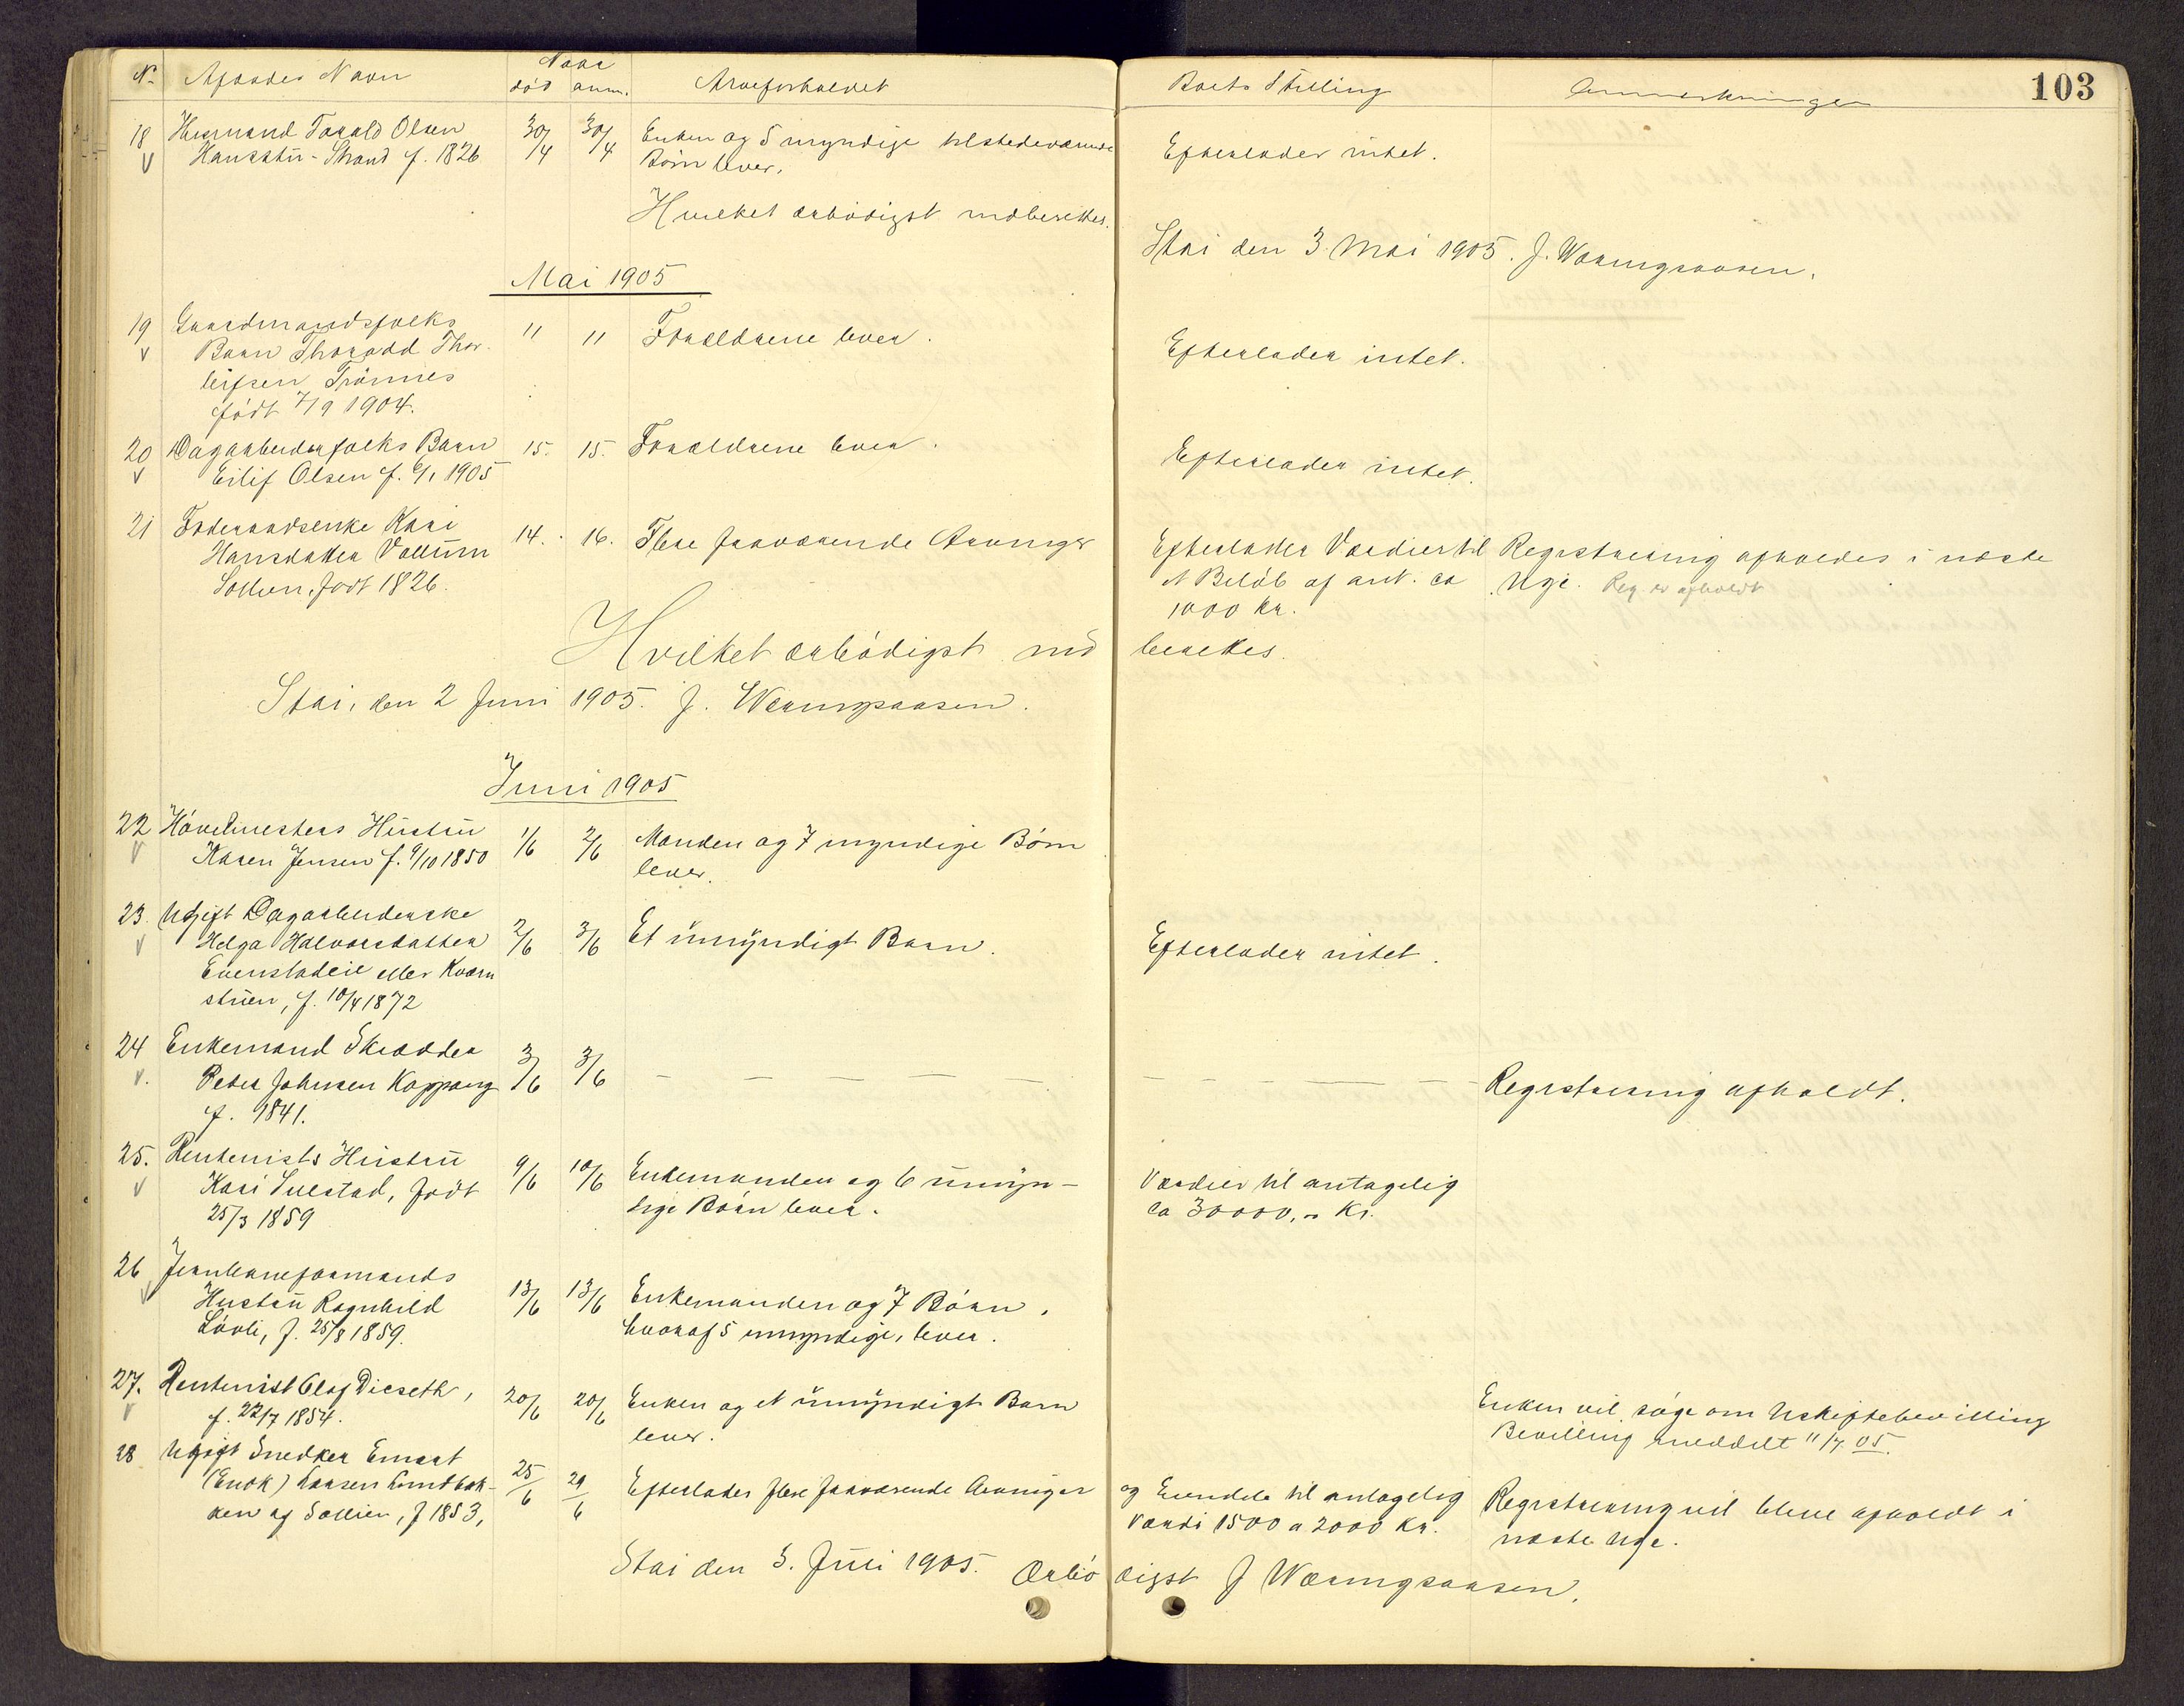 103
No. Afdødes Navn Naar død anm. Arveforholdet Boets Stilling Anmerkninger
18 Husmand Torald Olsen 30/4 30/4 Enken og 5 myndige tilstedeværende Efterlader intet.
V Hansstu-Strand f. 1826 Børn lever.
Hvilket ærbødigst indberettes.
Stai den 3 Mai 1905. J. Wæringsaasen.
Mai 1905
19 Gaardmandsfolks 11 11 Forældrene lever. Efterlader intet.
V Barn Thorodd Thor-
leifsen Trønnes
født 7/9 1904.
20 Dagarbeiderfolks Barn 15. 15. Forældrene lever. Efterlader intet.
V Eilif Olsen f. 6/1 1905
21 Føderaadsenke Kari 14. 16. Flere fraværende Arvinger Efterlader Værdier til Registrering afholdes i næste
Hansdatter Vollum et Beløb af ant. ca Uge. Reg. er afholdt
Sollien, født 1826. 1000 kr.
Hvilket ærbødigst indberettes.
Stai, den 2 Juni 1905. J. Wæringsaasen.
Juni 1905
22 Høvelmesters Hustru 1/6 2/6 Manden og 7 myndige Børn
V Karen Jensen f. 9/10 1850 lever.
23. Ugift Dagarbeiderske 2/6 3/6 Et umyndigt Barn. Efterlader intet.
V Helga Halvorsdatter
Evenstadeie eller Kværn
stuen, f. 10/4 1872
24 Enkemand Skrædder 3/6 3/6 — — — — — — — — — Registrering afholdt.
V. Peder Johnsen Koppang
f. 1841.
25. Renteniets Hustru 9/6 10/6 Enkemanden og 6 umyn- Værdier til antagelig
V Kari Sulestad, født dige Børn lever. ca 30000,- Kr.
25/3 1859
26 Jernbaneformands 13/6 13/6 Enkemanden og 7 Børn,
V Hustru Ragnhild hvoraf 5 umyndige, lever.
Løvli, f. 25/8 1859.
27. Rentenist Olaf Dieseth, 20/6 20/6 Enken og et umyndigt Barn Enken vil søge om Uskiftebevilling
V f. 22/7 1854. lever. Bevilling meddelt 11/7. 05.
28 Ugift Snedker Ernst 25/6 29/6 Efterlader flere fraværende Arvinger og Eiendele til antagelig Registrering vil blive afholdt i
(Enok) Larsen Lundbak- Værdi 1500 a 2000 Kr. næste Uge.
ken af Sollien, f 1853,
Stai den 3. Juli 1905. Ærbødigst J Wæringsaasen.